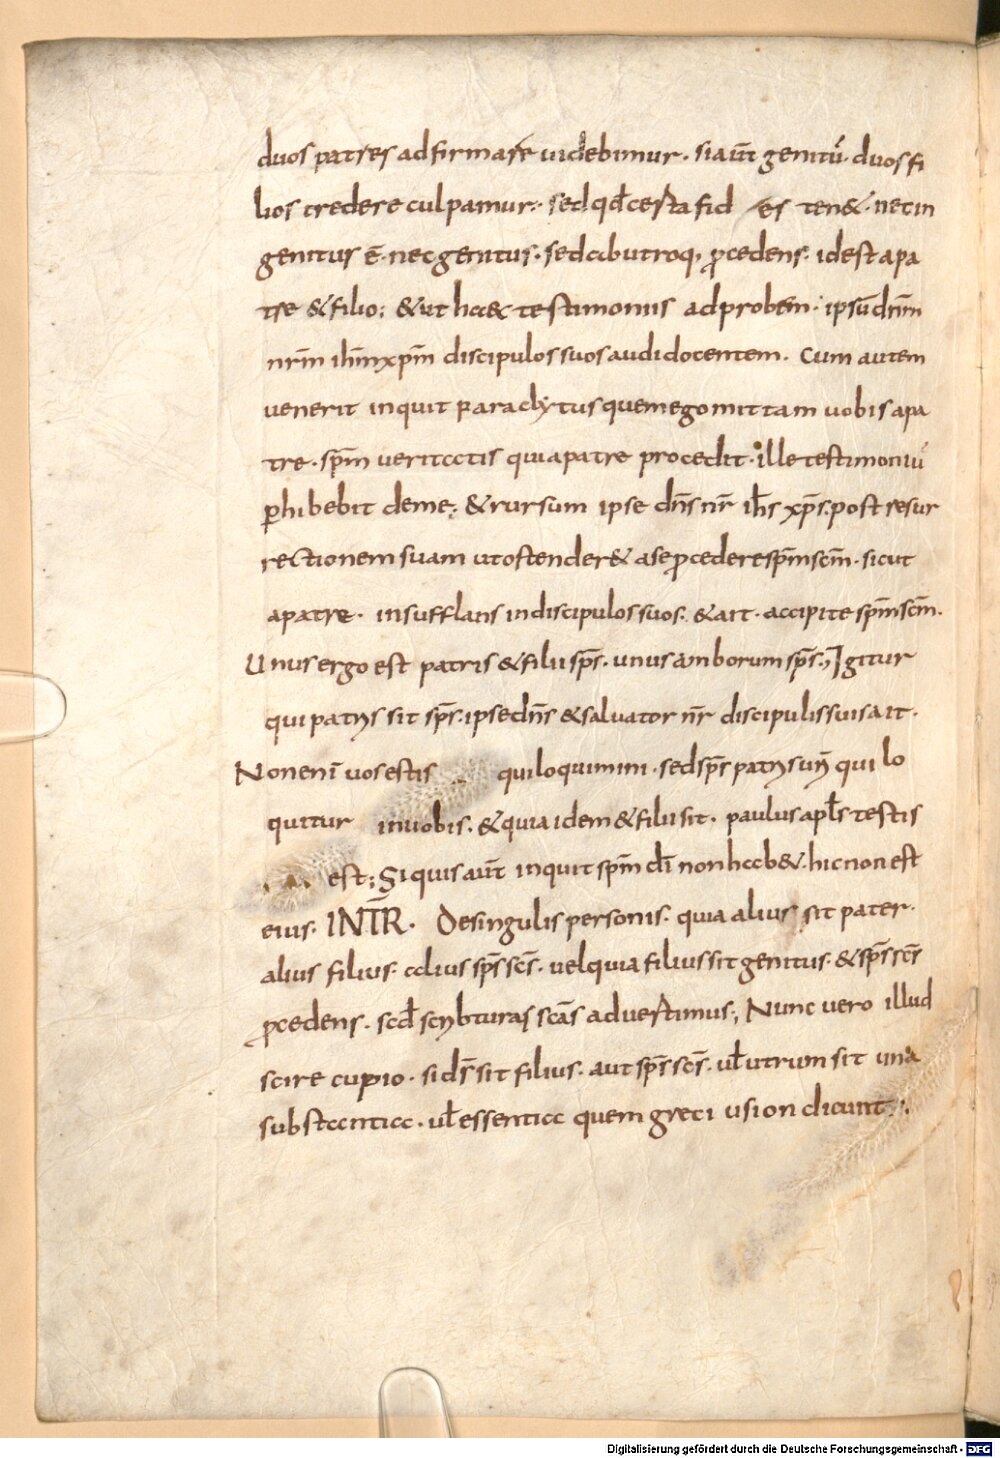 duos patres adfirmare uidebimur. si aūt genitū. duos fi
lios credere culpamur; sed qđ certa fid es ten&. nec in
genitus ē. nec genitus. sed ab utroq, ꝓcedens. id est a pa
tre & filio; & ut haec testimoniis adprobem. ipsū dn̄m
nr̄m ihm̄ xp̄m discipulos suos audi docentem. Cum autem
uenerit inquit paraclytus quem ego mittam uobis a pa
tre. sp̄m ueritatis qui a patre procedit. ille testimoniū
ꝑhibebit de me; & rursum ipse dn̄s nr̄ ihs̄ xp̄s. post resur
rectionem suam ut ostender& a se ꝓcedere sp̄m sc̄m. sicut
a patre. insufflans in discipulos suos. & ait. accipite sp̄m sc̄m.
Unus ergo est patris & filii sp̄s. unus amborum sp̄s; Igitur
qui patris sit sp̄s. ipse dn̄s & saluator nr̄ discipulis suis ait.
Non enī uos estis qui loquimini. sed sp̄s patris ur̄i qui lo
quitur in uobis. & quia idem & filii sit. paulus apl̄s testis
est; Si quis aūt inquit sp̄m dī non hab&. hic non est
eius. INT̄R. De singulis personis. quia alius sit pater.
alius filius. alius sp̄s sc̄s. uel quia filius sit genitus. & sp̄s sc̄s
ꝓcedens. scđ scribturas sc̄as aduertimus; Nunc uero illud
scire cupio. si ds̄ sit filius. aut sp̄s sc̄s. ul̄ utrum sit una
substantia. ul̄ essentia quem greci usion dicunt;
Digitalisierung gefördert durch die Deutsche Forschungsgemeinschaft - DFG